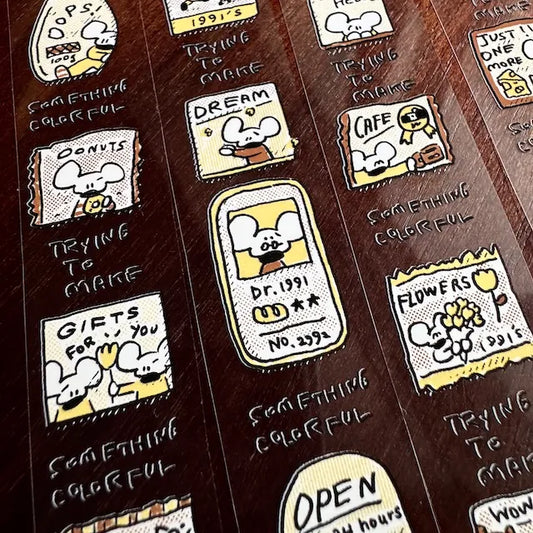 OPS!
100%
SOMETHING
COLORFUL
DONUTS
TRYING
TO
MAKE
GIFTS
FOR.. YOU
SOMETHING
COLORFUL
1991'S
TRYING
TO
MAKE
DREAM
Dr. 1991
NO. 2992
SOMETHING
COLORFUL
OPEN
24 hours
TRYING
TO
MAKE
CAFE
SOMETHING
COLORFUL
FLOWERS
1991'S
TRYING
TO
MAKE
WOW
JUST!
ONE
MORE
SOMETHING
COLORFUL